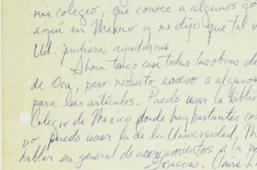 mi colegio, que conoce a algunos
aquí en México y me dijo que tal
Ud. pudiera ayudarme.
Ahora tengo casi todas las obras de
de Oca, pero necesito acceso a algunos
para los artículos. Puedo usar la biblio
Colegio de México donde hay bastantes
no puedo usar la de la Universidad,
hablar en general de acercamientos a la
Gracias. Claire